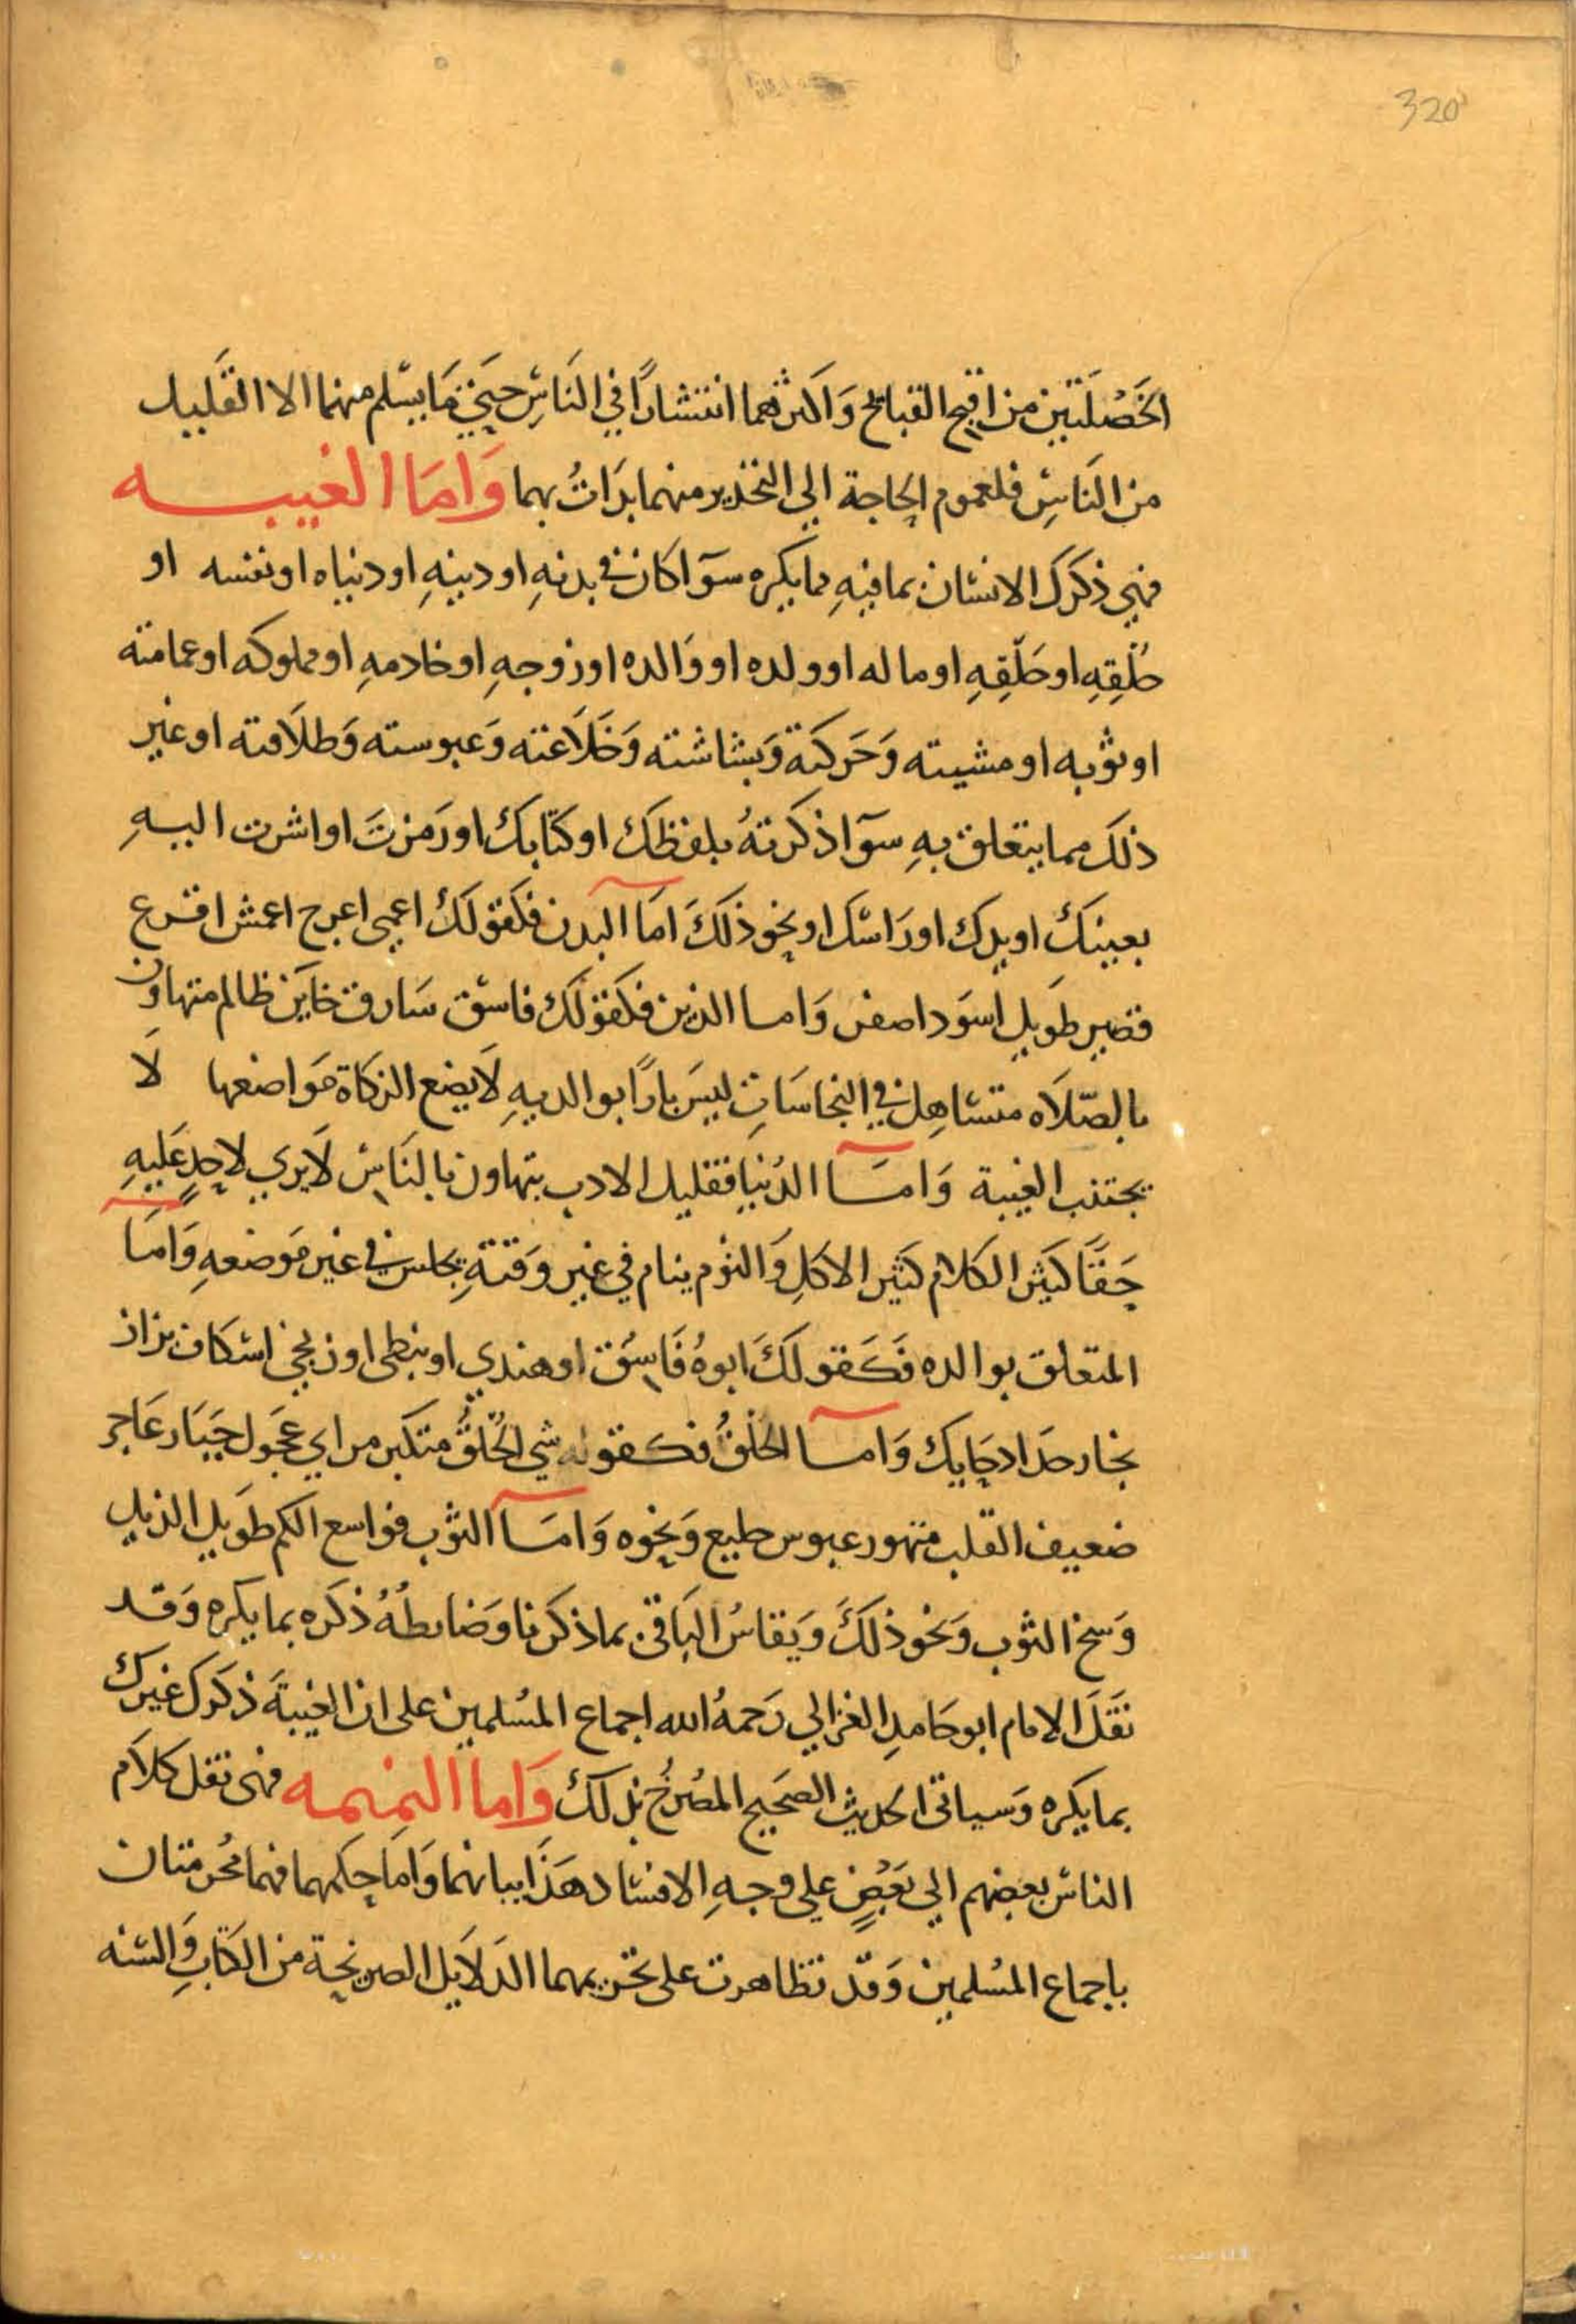 320
الخَصْلَتَين من اقبح القبايح وَاكثرهما انتشارًا في النَاسِ حتي مَا يسْلم منهما الا القَليل
من النَاسِ فلعموم الحاجة الي التحذير منهما بدَاتُ بهما وَامَا الغيبه
فهي ذكرَك الانسَان بما فيهِ مما يكره سوَآ كان في بدنهِ او دينهِ او دنياه او نفسه او
خُلُقِهِ او خَلْقِهِ او ماله او ولده او وَالده او زوجهِ او خادمهِ او مملوكه او عمامته
او ثوبه او مشيته وَحَركتَه وَبشاشته وَخَلَاعته وَعبوسته وَطلَاقته او غير
ذلكَ مما يتعلق بهِ سوَآ ذكرتهُ بلفظكَ او كتَابكَ او رَمزتَ او اشرت اليهِ
بعينكَ او يدك او رَاسك او نحو ذلكَ امَا البدن فكقولكَ اعمي اعرج اعمش اقرع
قصير طَويل اسوَد اصفر وَاما الدين فكقولك فاسق سَارق خاين ظالم متهاون
بالصّلَاه متسَاهِل في النجاسَات ليسَ بارًا بوالديهِ لَا يضع الزكاة مَواضعها لَا
يجتنب الغيبة وَامَا الدُنيا فقليل الادب يتهاون بالنَاس لَا يري لاحدٍ عَليهِ
حَقًا كثير الكلام كثير الاكلِ وَالنوم ينام في غير وَقتهِ يجلس في غير مَوضعهِ وَامَا
المتعلق بوالده فَكَقولكَ ابوهُ فَاسِق او هندي او نبطي او زنجي اسكاف بزاز
نجار حدَاد حَايك وَامَا الخُلُقُ فكقوله سَي الخُلقُ متكبر مراي عَجَول جَبَار عَاجز
ضعيف القلب متهور عبوس خليع وَنحوه وَامَا الثوب فواسع الكم طَويل الذيل
وَسخ الثوب وَنحو ذلكَ وَيقاسُ البَاقي بما ذكرنا وَضابطُهُ ذكره بما يكره وَقد
نَقَلَ الامام ابو حَامدِ الغزالي رَحمهُ الله اجماع المسُلمين على ان الغيبَةَ ذكرَك غيرك
بما يكره وَسياتى الحديث الصَحيح المصُرحُ بذلكَ وَاما النميمه فهى نقل كلَام
الناسَ بعضهم الي بَعْضٍ علي وجهِ الافسَاد هَذَا بيانهما وَامَا حكمهما فهما محُرمتان
باجماع المسُلمين وَقد تظاهرت على تحريمهما الدَلَايل الصريحة من الكتَابِ وَالسنه